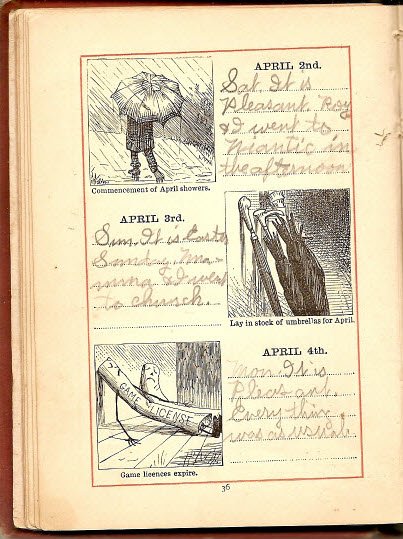 APRIL 2nd.
Sat. It is
Pleasant. Roy
& I went to
Niantic in
the afternoon.
Commencement of April showers.
APRIL 3rd.
Sun. It is Easter
Sunday. Ma-
mma & I went
to church.
Lay in stock of umbrellas for April.
GAME LICENSE
APRIL 4th.
Mon. It is
Pleasant.
Everything
was as usual.
Game licences expire.
36